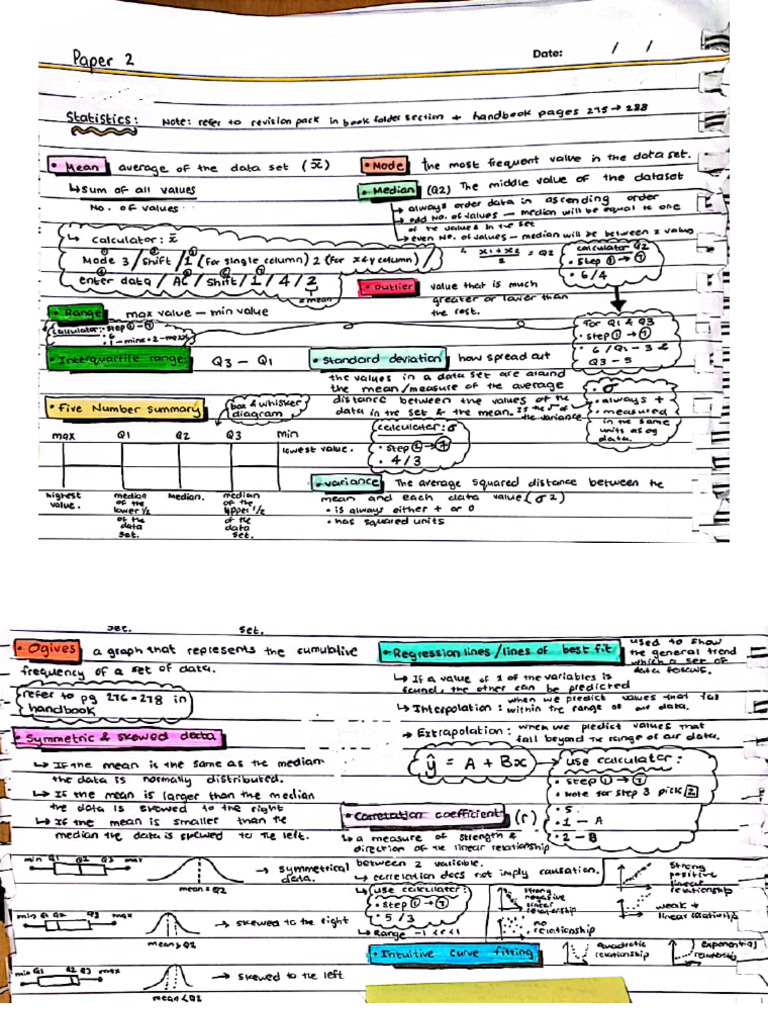 Paper 2
Date: / /
Statistics: Note: refer to revision pack in book folder section + handbook pages 275 → 288
• Mean average of the data set (x̄)
↳ sum of all values
No. of values
• Mode the most frequent value in the data set.
• Median (Q2) The middle value of the dataset
→ always order data in ascending order
→ odd No. of values – median will be equal to one
of the values in the set
→ even No. of values – median will be between 2 value
↳ x1 + x2 / 2 = Q2
↳ calculator: x̄
Mode 3 / Shift / 1 (for single column) 2 (for x & y column) /
enter data / AC / Shift / 1 / 4 / 2
x mean
calculator Q2
• Step ① → ⑦
• 6/4
• Outlier value that is much
greater or lower than
the rest.
• Range max value – min value
calculator: step ① – ⑦
• 6
For Q1 & Q3
• step ① → ⑦
• 6 / Q1 – 3 &
Q3 – 5
• Interquartile range Q3 – Q1
• Standard deviation how spread out
the values in a data set are around
the mean/measure of the average
distance between the values of the
data in the set & the mean. Is the √ of
the variance
• σ
• always +
• measured
in the same
units as og
data.
• Five Number summary
box & whisker
diagram
calculator: σ
• step ① → ⑦
• 4/3
max Q1 Q2 Q3 Min
lowest value.
highest
value.
median
of the
lower 1/2
of the
data
set.
Median.
median
of the
upper 1/2
of the
data
set.
• variance The average squared distance between the
mean and each data value (σ2)
• is always either + or 0
• has squared units
set. set.
• Ogives a graph that represents the cumulative
frequency of a set of data.
refer to pg 276-278 in
handbook
• Regression lines / lines of best fit used to show
the general trend
which a set of
data follows.
↳ If a value of 1 of the variables is
found, the other can be predicted
↳ Interpolation: when we predict values that fall
within the range of our data.
→ Extrapolation: when we predict values that
fall beyond the range of our data.
• Symmetric & skewed data
↳ If the mean is the same as the median
the data is normally distributed.
↳ If the mean is larger than the median
the data is skewed to the right
↳ If the mean is smaller than the
median the data is skewed to the left.
ŷ = A + Bx
use calculator:
• step ① → ⑦
• Note for step 3 pick 2
• 5
• 1 – A
• 2 – B
• Correlation coefficient (r)
↳ a measure of strength &
direction of the linear relationship
between 2 variable.
↳ correlation does not imply causation.
↳ use calculator:
• step ① → ⑦
• 5/3
↳ Range -1 < r < 1
strong
negative
linear
relationship
no
relationship
strong
positive
linear
relationship
weak +
linear relationship
min Q1 Q2 Q3 max
mean = Q2
→ symmetrical
data.
min Q1 Q2 Q3 max
mean > Q2
→ skewed to the right
min Q1 Q2 Q3 max
mean < Q2
→ skewed to the left
• Intuitive curve fitting
quadratic
relationship
exponential
relationship